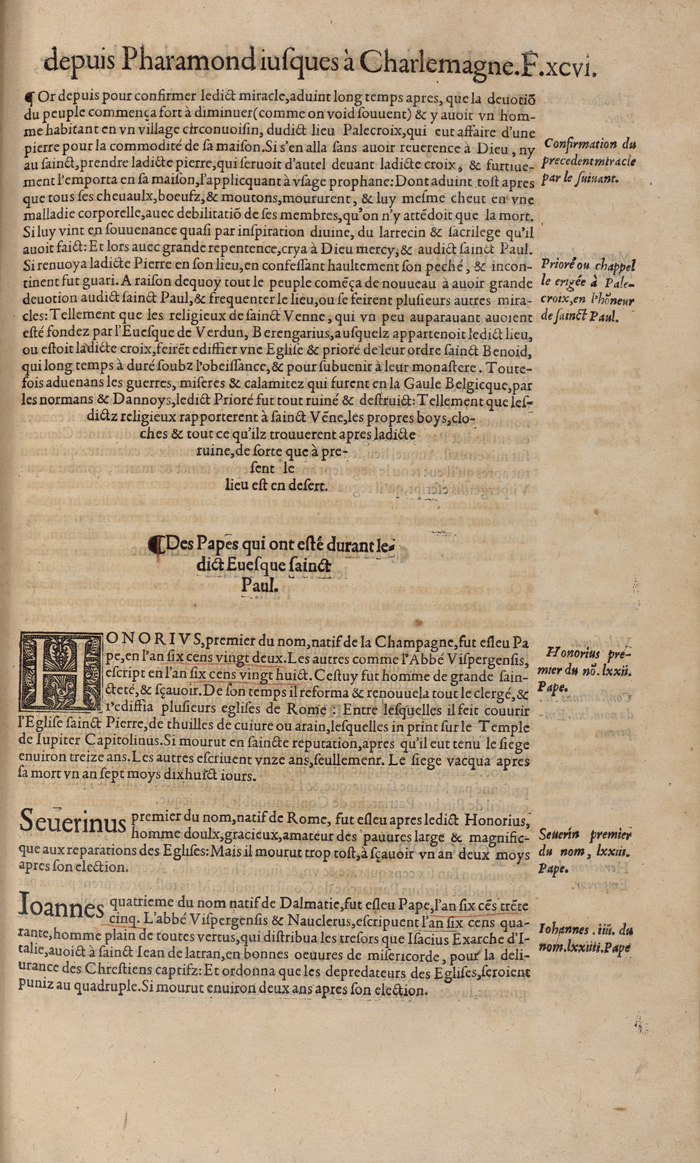 depuis Pharamond iuſques à Charlemagne. F. xcvi.
¶ Or depuis pour confirmer ledict miracle, aduint long temps apres, que la deuotiõ
du peuple commença fort à diminuer (comme on void ſouuent) & y auoit vn hom-
me habitant en vn village circonuoiſin, dudict lieu Palecroix, qui eut affaire d'une
pierre pour la commodité de ſa maiſon. Si s'en alla ſans auoir reuerence à Dieu, ny
au ſainct, prendre ladicte pierre, qui ſeruoit d'autel deuant ladicte croix, & furtiue-
ment l'emporta en ſa maiſon, l'applicquant à vſage prophane: Dont aduint toſt apres
que tous ſes cheuaulx, boeufz, & moutons, moururent, & luy meſme cheut en vne
malladie corporelle, auec debilitatiõ de ſes membres, qu'on n'y attẽdoit que la mort.
Si luy vint en ſouuenance quaſi par inſpiration diuine, du larrecin & ſacrilege qu'il
auoit faict: Et lors auec grande repentence, crya à Dieu mercy, & audict ſainct Paul.
Si renuoya ladicte Pierre en ſon lieu, en confeſſant haultement ſon peché, & incon-
tinent fut guari. A raiſon dequoy tout le peuple comẽça de nouueau à auoir grande
deuotion audict ſainct Paul, & frequenter le lieu, ou ſe feirent pluſieurs autres mira-
cles: Tellement que les religieux de ſainct Venne, qui vn peu auparauant auoient
eſté fondez par l'Eueſque de Verdun, Berengarius, auſquelz appartenoit ledict lieu,
ou eſtoit ladicte croix, feirẽt ediffier vne Egliſe & prioré de leur ordre ſainct Benoid,
qui long temps à duré ſoubz l'obeiſſance, & pour ſubuenir à leur monaſtere. Toute-
fois aduenans les guerres, miſeres & calamitez qui furent en la Gaule Belgicque, par
les normans & Dannoys, ledict Prioré fut tout ruiné & deſtruict: Tellement que leſ-
dictz religieux rapporterent à ſainct Vẽne, les propres boys, clo-
ches & tout ce qu'ilz trouuerent apres ladicte
ruine, de ſorte que à pre-
ſent le
lieu eſt en deſert.
Confirmation du
precedent miracle
par le ſuiuant.
Prioré ou chappel
le erigée à Pale-
croix, en l'hõneur
de ſainct Paul.
¶ Des Papes qui ont eſté durant le-
dict Eueſque ſainct
Paul.
HONORIVS, premier du nom, natif de la Champagne, fut eſleu Pa
pe, en l'an ſix cens vingt deux. Les autres comme l'Abbé Viſpergenſis,
eſcript en l'an ſix cens vingt huict. Ceſtuy fut homme de grande ſain-
cteté, & ſçauoir. De ſon temps il reforma & renouuela tout le clergé, &
r'ediffia pluſieurs egliſes de Rome: Entre leſquelles il feit couurir
l'Egliſe ſainct Pierre, de thuilles de cuiure ou arain, leſquelles in print ſur le Temple
de Iupiter Capitolinus. Si mourut en ſaincte reputation, apres qu'il eut tenu le ſiege
enuiron treize ans. Les autres eſcriuent vnze ans, ſeullement. Le ſiege vacqua apres
ſa mort vn an ſept moys dixhuict iours.
Honorius pre-
mier du nõ. lxxii.
Pape.
Seuerinus premier du nom, natif de Rome, fut eſleu apres ledict Honorius,
homme doulx, gracieux, amateur des pauures large & magnific-
que aux reparations des Egliſes: Mais il mourut trop toſt, à ſçauoir vn an deux moys
apres ſon election.
Seuerin premier
du nom, lxxiii.
Pape.
Ioannes quatrieme du nom natif de Dalmatie, fut eſleu Pape, l'an ſix cẽs trẽte
cinq. L'abbé Viſpergenſis & Nauclerus, eſcripuent l'an ſix cens qua-
rante, homme plain de toutes vertus, qui diſtribua les treſors que Iſacius Exarche d'I-
talie, auoict à ſainct Iean de latran, en bonnes oeuures de miſericorde, pour la deli-
urance des Chreſtiens captifz: Et ordonna que les depredateurs des Egliſes, ſeroient
puniz au quadruple. Si mourut enuiron deux ans apres ſon election.
Iohannes .iiii. du
nom. lxxiiii. Pape